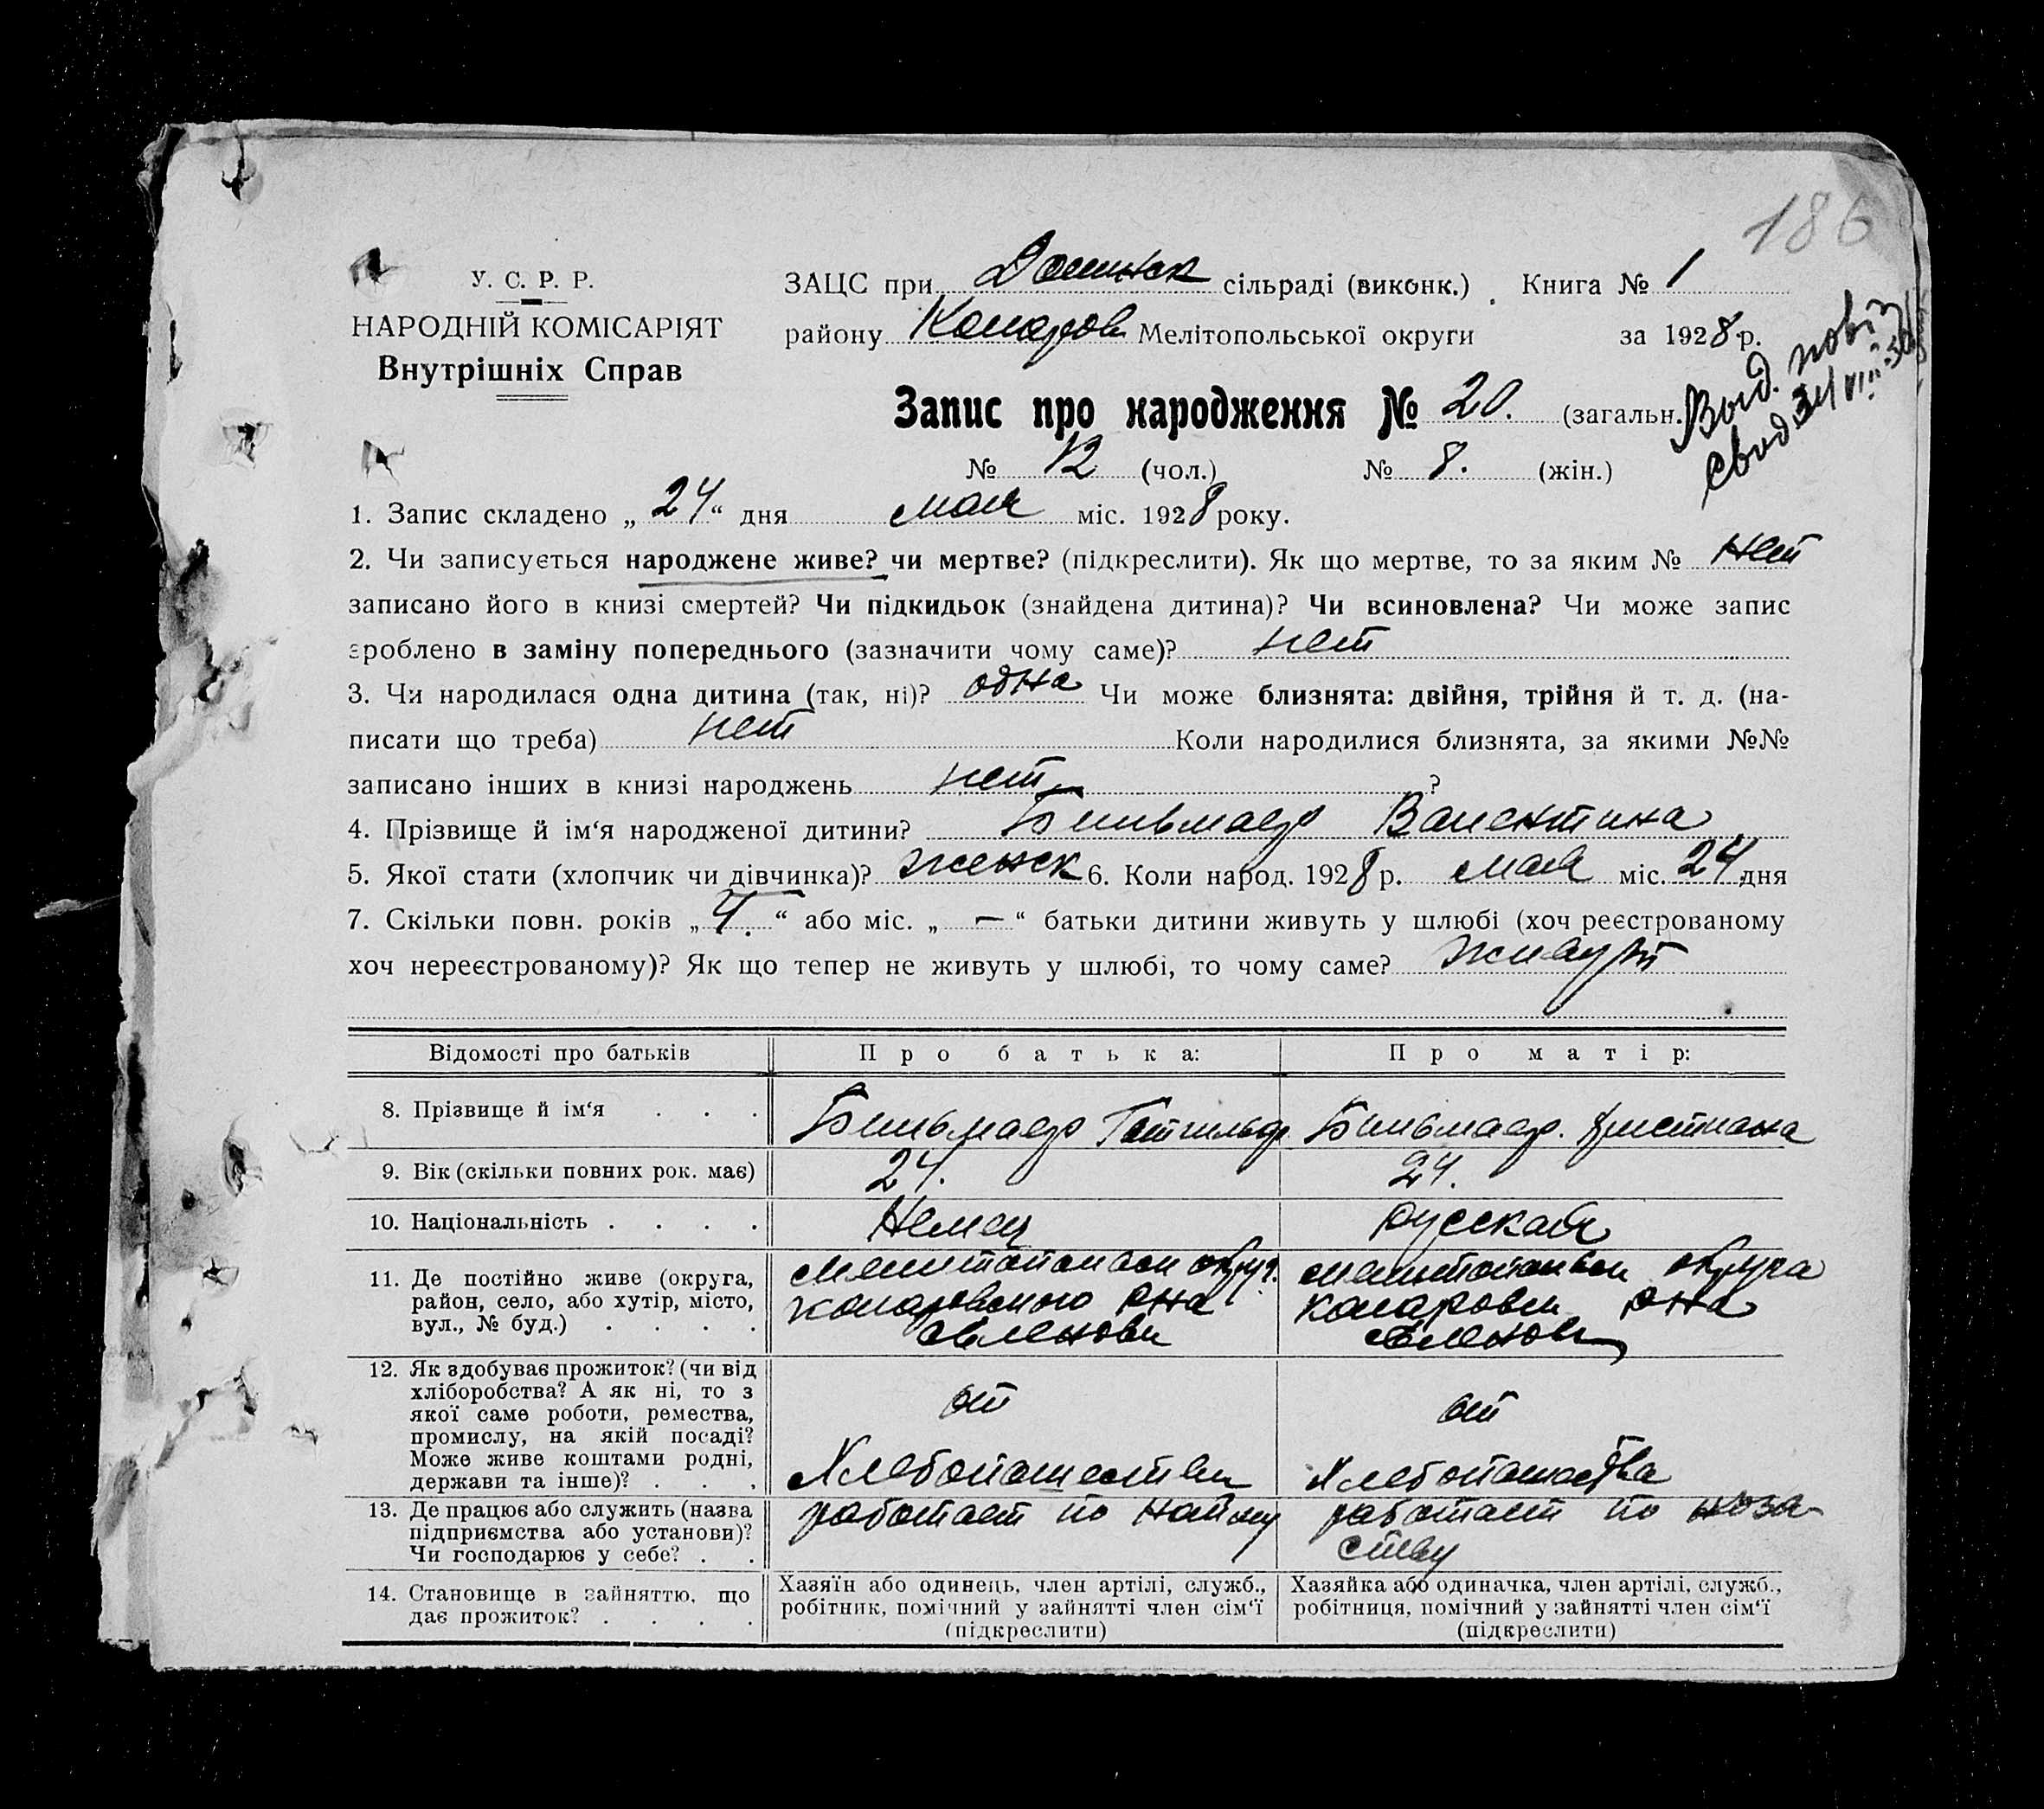 186
У. С. Р. Р.
НАРОДНІЙ КОМІСАРІЯТ
Внутрішніх Справ
ЗАЦС при сільраді (виконк.) Книга № 1
району Комаров Мелітопольської округи за 1928 р.
Запис про народження № 20. (загальн.
Выд. повт.
свид.
№ 12 (чол.) № 8. (жін.)
1. Запис складено „24“ дня мая міс. 1928 року.
2. Чи записується народжене живе? чи мертве? (підкреслити). Як що мертве, то за яким № нет
записано його в книзі смертей? Чи підкидьок (знайдена дитина)? Чи всиновлена? Чи може запис
зроблено в заміну попереднього (зазначити чому саме)? нет
3. Чи народилася одна дитина (так, ні)? одна Чи може близнята: двійня, трійня й т. д. (на-
писати що треба) нет Коли народилися близнята, за якими №№
записано інших в книзі народжень нет ?
4. Прізвище й ім‘я народженої дитини? Бильмаер Валентина
5. Якої стати (хлопчик чи дівчинка)? женск 6. Коли народ. 1928 р. мая міс. 24 дня
7. Скільки повн. років „4.“ або міс. „—“ батьки дитини живуть у шлюбі (хоч реєстрованому
хоч нереєстрованому)? Як що тепер не живуть у шлюбі, то чому саме? живут
Відомості про батьків Про батька: Про матір:
8. Прізвище й ім‘я . . . Бильмаер Готгильф Бильмаер. Христиана
9. Вік (скільки повних рок. має) 24. 24.
10. Національність . . . . Немец русская
11. Де постійно живе (округа,
район, село, або хутір, місто,
вул., № буд.) . . . .
Мелитопольской округ.
комаровского р-на
Мелитопольск округа
комаровск р-на
12. Як здобуває прожиток? (чи від
хліборобства? А як ні, то з
якої саме роботи, ремества,
промислу, на якій посаді?
Може живе коштами родні,
держави та інше)? . . .
от
Хлебопашества
от
Хлебопашества
13. Де працює або служить (назва
підприємства або установи)?
Чи господарює у себе? . .
работает по найму
работает по хозя-
ству
14. Становище в зайняттю, що
дає прожиток? . . . .
Хазяїн або одинець, член артілі, служб.,
робітник, помічний у зайнятті член сім‘ї
(підкреслити)
Хазяйка або одиначка, член артілі, служб.,
робітниця, помічний у зайнятті член сім‘ї
(підкреслити)